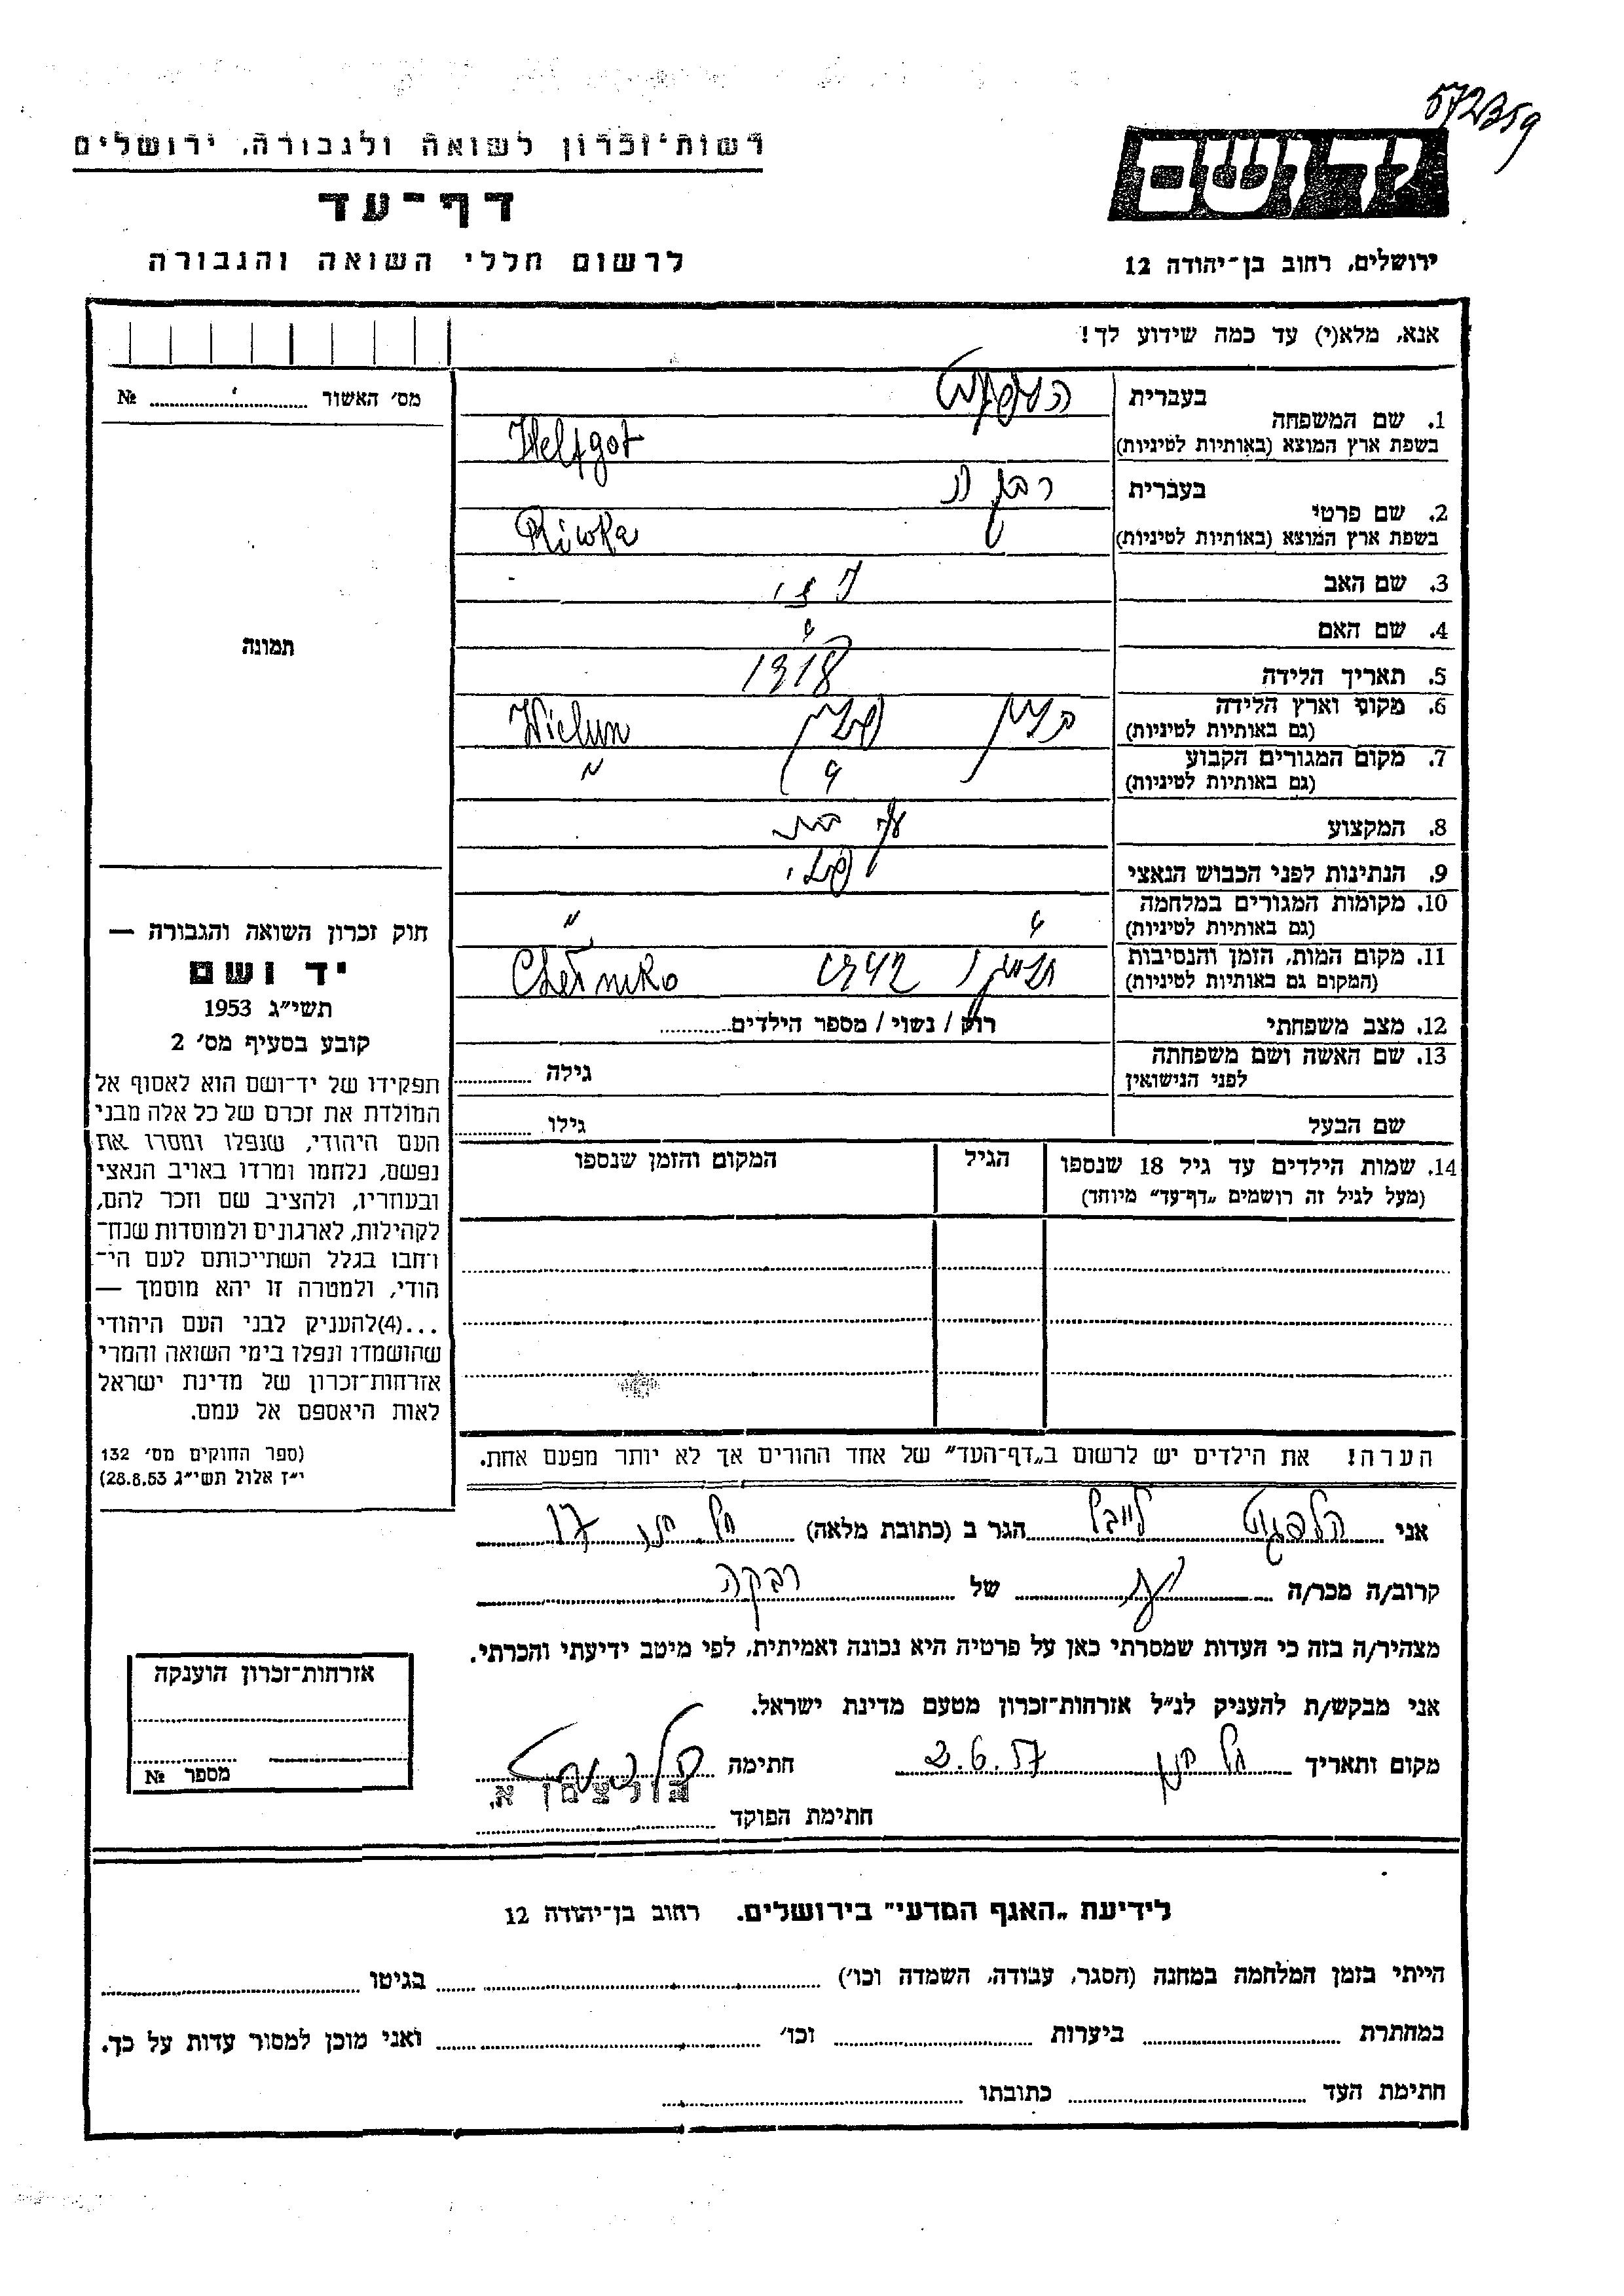 572359
רשות-זכרון לשואה ולגבורה, ירושלים
יד ושם
דף-עד
לרשום חללי השואה והגבורה
ירושלים, רחוב בן-יהודה 12
אנא, מלא(י) עד כמה שידוע לך!
מס׳ האשור № 
בעברית
1. שם המשפחה
בשפת ארץ המוצא (באותיות לטיניות) Helfgot
בעברית
2. שם פרטי
בשפת ארץ המוצא (באותיות לטיניות) Riwka
3. שם האב
4. שם האם
5. תאריך הלידה 1918
6. מקום וארץ הלידה
(גם באותיות לטיניות) Wielun
7. מקום המגורים הקבוע "
(גם באותיות לטיניות)
8. המקצוע
9. הנתינות לפני הכבוש הנאצי
10. מקומות המגורים במלחמה "
(גם באותיות לטיניות)
11. מקום המות, הזמן והנסיבות 1942
(המקום גם באותיות לטיניות)
12. מצב משפחתי רווק / נשוי / מספר הילדים
13. שם האשה ושם משפחתה גילה
לפני הנישואין
שם הבעל גילו
14. שמות הילדים עד גיל 18 שנספו הגיל המקום והזמן שנספו
(מעל לגיל זה רושמים „דף-עד” מיוחד)
תמונה
חוק זכרון השואה והגבורה —
יד ושם
תשי״ג 1953
קובע בסעיף מס׳ 2
תפקידו של יד-ושם הוא לאסוף אל
המולדת את זכרם של כל אלה מבני
העם היהודי, שנפלו ומסרו את
נפשם, נלחמו ומרדו באויב הנאצי
ובעוזריו, ולהציב שם וזכר להם,
לקהילות, לארגונים ולמוסדות שנח-
רחבו בגלל השתייכותם לעם הי-
הודי, ולמטרה זו יהא מוסמך —
...(4)להעניק לבני העם היהודי
שהושמדו ונפלו בימי השואה והמרי
אזרחות-זכרון של מדינת ישראל
לאות היאספם אל עמם.
(ספר החוקים מס׳ 132
י״ז אלול תשי״ג 28.8.53)
הערה! את הילדים יש לרשום ב„דף-העד” של אחד ההורים אך לא יותר מפעם אחת.
אני הלפגוט לייבל הגר ב (כתובת מלאה) 17
קרוב/ה מכר/ה של רבקה
מצהיר/ה בזה כי העדות שמסרתי כאן על פרטיה היא נכונה ואמיתית, לפי מיטב ידיעתי והכרתי.
אני מבקש/ת להעניק לנ״ל אזרחות-זכרון מטעם מדינת ישראל.
מקום ותאריך 2.6.57 חתימה
חתימת הפוקד
אזרחות-זכרון הוענקה
מספר №
לידיעת „האגף המדעי” בירושלים. רחוב בן-יהודה 12
הייתי בזמן המלחמה במחנה (הסגר, עבודה, השמדה וכו׳) בגיטו
במחתרת ביערות וכו׳ ואני מוכן למסור עדות על כך.
חתימת העד כתובתו